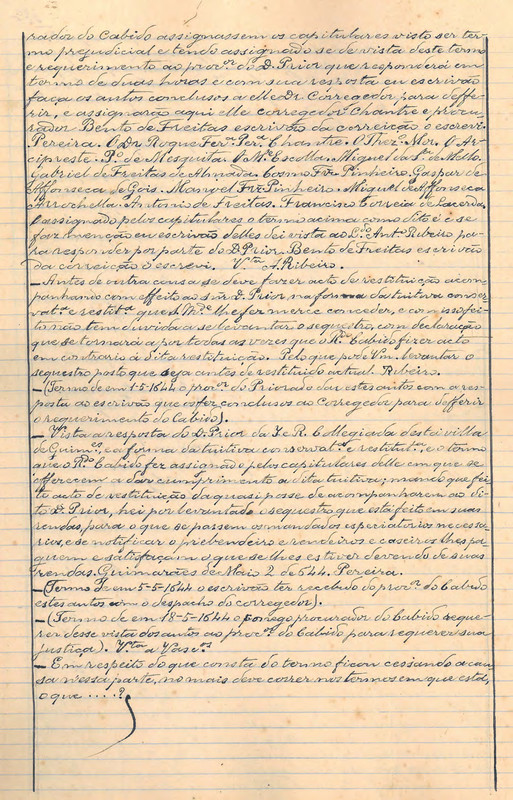 rador do Cabido assignassem os capitulares visto ser ter-
mo prejudicial e tendo assignado se de vista deste termo
e requerimento ao procor. do D. Prior que responderá em
termo de duas horas e com sua resposta eu escrivão
faça os autos conclusos a elle Dr. Corregedor para deffe-
rir, e assignarão aqui elle corregedor Chantre e procu-
rador Bento de Freitas escrivão da correição o escrevi.
Pereira. O Dr. Roque Ferra. Pera. Chantre. O Thezo. Mor. O Ar-
cipreste. Po. de Mesquita. O Me. Escolla. Miguel da Sa. de Mello.
Gabriel de Freitas de Almada. Cosmo Frz. Pinheiro. Gaspar de
Affonseca de Gois. Manoel Frz. Pinheiro. Miguel de Affonseca
Arrochella. Antonio de Freitas. Francisco Correia de Lacerda.
E assignado pelos capitulares o termo acima como dito é e se
faz menção eu escrivão delles dei vista ao Lco. Anto. Ribeiro pa-
ra responder por parte do D. Prior. Bento de Freitas escrivão
da correição o escrevi. Vta. A. Ribeiro.
— Antes de outra causa se deve fazer acto de restituição acom-
panhando com effeito ao snr. D. Prior na forma da tuitiva conser-
vata. e restita. que S. Mde. lhe fez merce conceder, e com isso fei-
to não tem duvida a se levantar o sequestro, com declaração
que se tornará a por todas as vezes que o Ro. Cabido fizer acto
em contrario á dita restituição. Pelo que pode Vm. levantar o
sequestro posto que seja antes de restituido actual. Ribeiro.
— (Termo de em 1-5-1644 o procor. do Priorado dar estes autos com a res-
posta ao escrivão que os fez conclusos ao Corregedor para defferir
o requerimento do Cabido).
— Vista a resposta do D. Prior da I. e R. Collegiada desta villa
de Guimes. e a forma da tuitiva conservata. e restituta. e o termo
que o Rdo. Cabido fez assignado pelos capitulares delle em que se
offerecem a dar cumprimento a dita tuitiva; mando que fei-
to acto de restituição da quasi posse de acompanharem ao di-
to D. Prior, hei por levantado o sequestro que está feito em suas
rendas, para o que se passem os mandados especiatorios necessa-
rios, e se notificar o prebendeiro e rendeiros e caseiros lhes pa-
guem e satisfaçam o que se lhes estiver devendo de suas
rendas. Guimarães de Maio 2 de 644. Pereira.
— (Termo de em 5-5-1644 o escrivão ter recebido do procor. do Cabido
estes autos com o despacho do corregedor).
— (Termo de em 18-5-1644 o conego procurador do Cabido reque-
rer desse vista dos autos ao procor. do Cabido para requerer sua
justiça). Vta. a Vascos.
— Em respeito do que consta do termo ficou cessando a cau-
sa n'essa parte, no mais deve correr nos termos em que está,
o que ....?